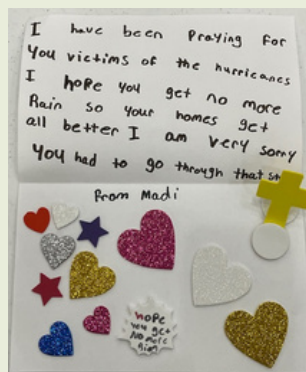 I have been Praying for
You victims of the hurricanes
I hope you get no more
Rain so your homes get
all better I am very sorry
You had to go through that
From Madi
Hope
you get
No more
Rain